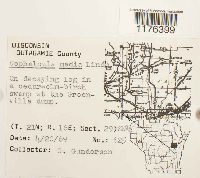 1176399
WISCONSIN
OUTAGAMIE County
Cephalozia media Lindb.
On decaying log in
a cedar-elm-birch
swamp at the Green-
ville dump.
(T. 21N; R. 16E; Sect. 29)
Date: 4/20/69 No. 629
Collector: S. Gunderson